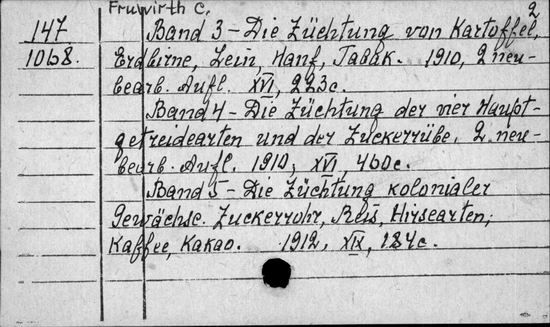 Fruwirth C.
2
147
1068.
Band 3 – Die Züchtung von Kartoffel,
Erdbirne, Lein, Hanf, Tabak. 1910, 2 neu-
bearb. Aufl. XVI, 223c.
Band 4 – Die Züchtung der vier Haupt-
getreidearten und der Zuckerrübe. 2. neu-
bearb. Aufl. 1910, XVI, 460c.
Band 5 – Die Züchtung kolonialer
Gewächse. Zuckerrohr, Reis, Hirsearten,
Kaffee, Kakao. 1912, XIX, 184c.